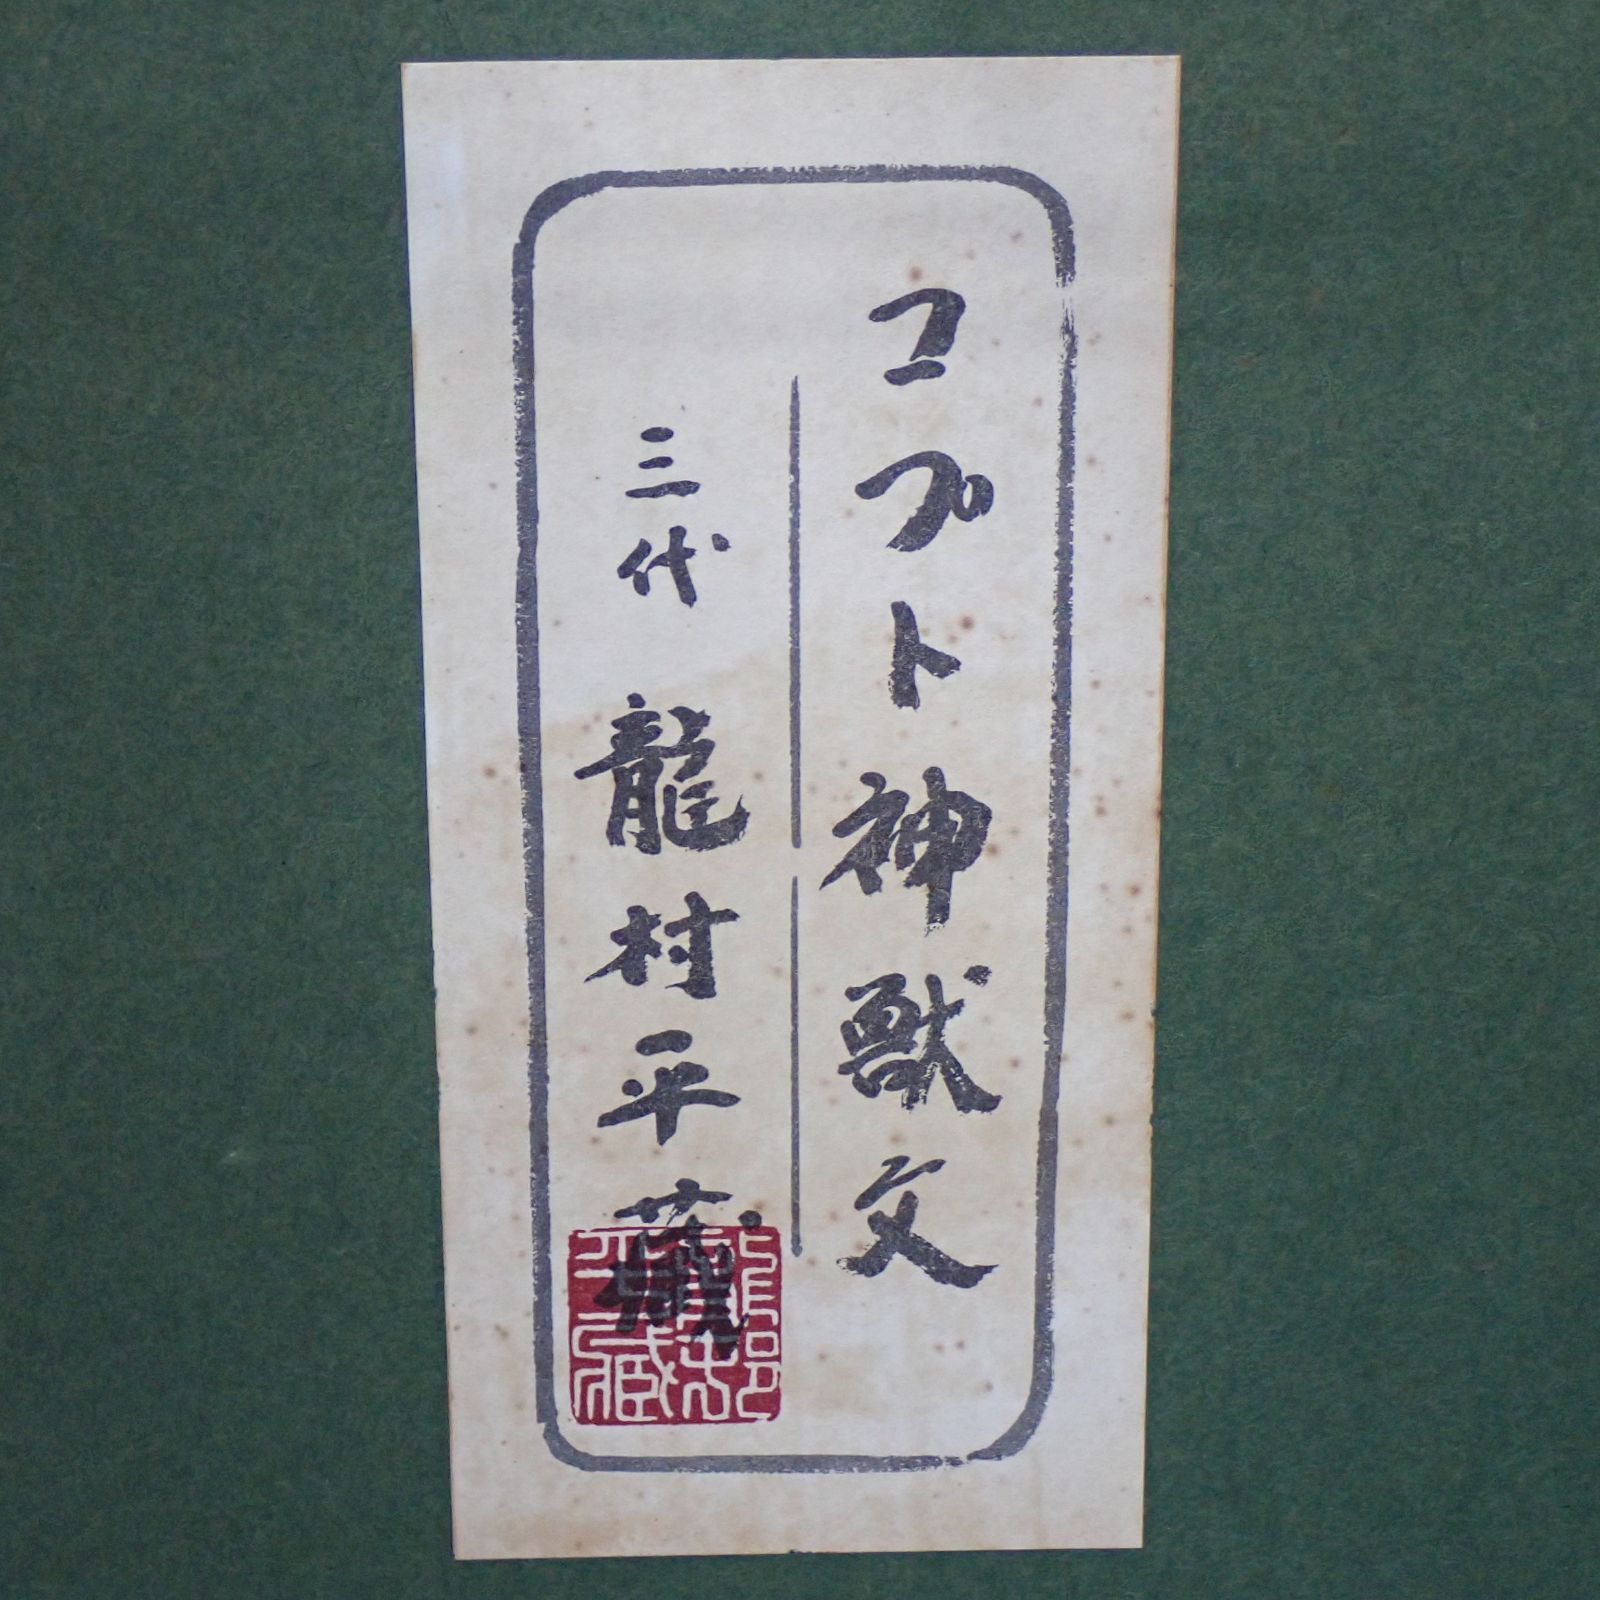 コプト神獣文
三代 龍村平藏
龍村平藏